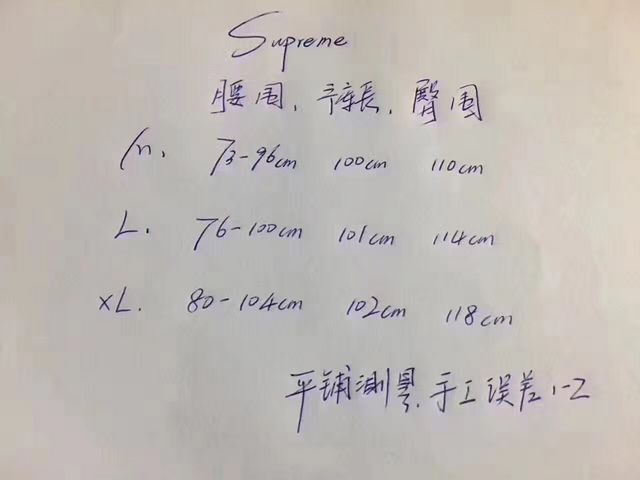 Supreme
腰围，裤長，臀围
m. 73-96cm 100cm 110cm
L. 76-100cm 101cm 114cm
XL. 80-104cm 102cm 118cm
平铺测量，手工误差1-2